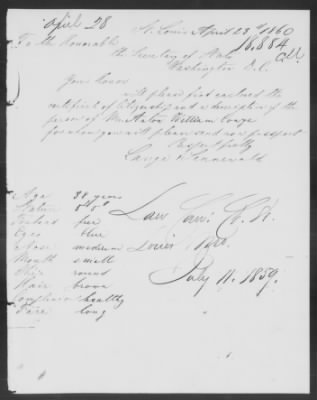 April 28
St. Louis April 23 1860
18,884
To the Honorable
the Secretary of State
Washington D.C.
Your Honor
will please find enclosed the
certificate of Citizenship and a description of the
person of Mr. Anton William
for whom you will please send
Respectfully
Lange &
Age 38 years
Stature 5 8
Forehead free
Eyes blue
Nose medium
Mouth small
Chin round
Hair brown
Complexion healthy
Face long
Law
Louis
July 11. 1859.